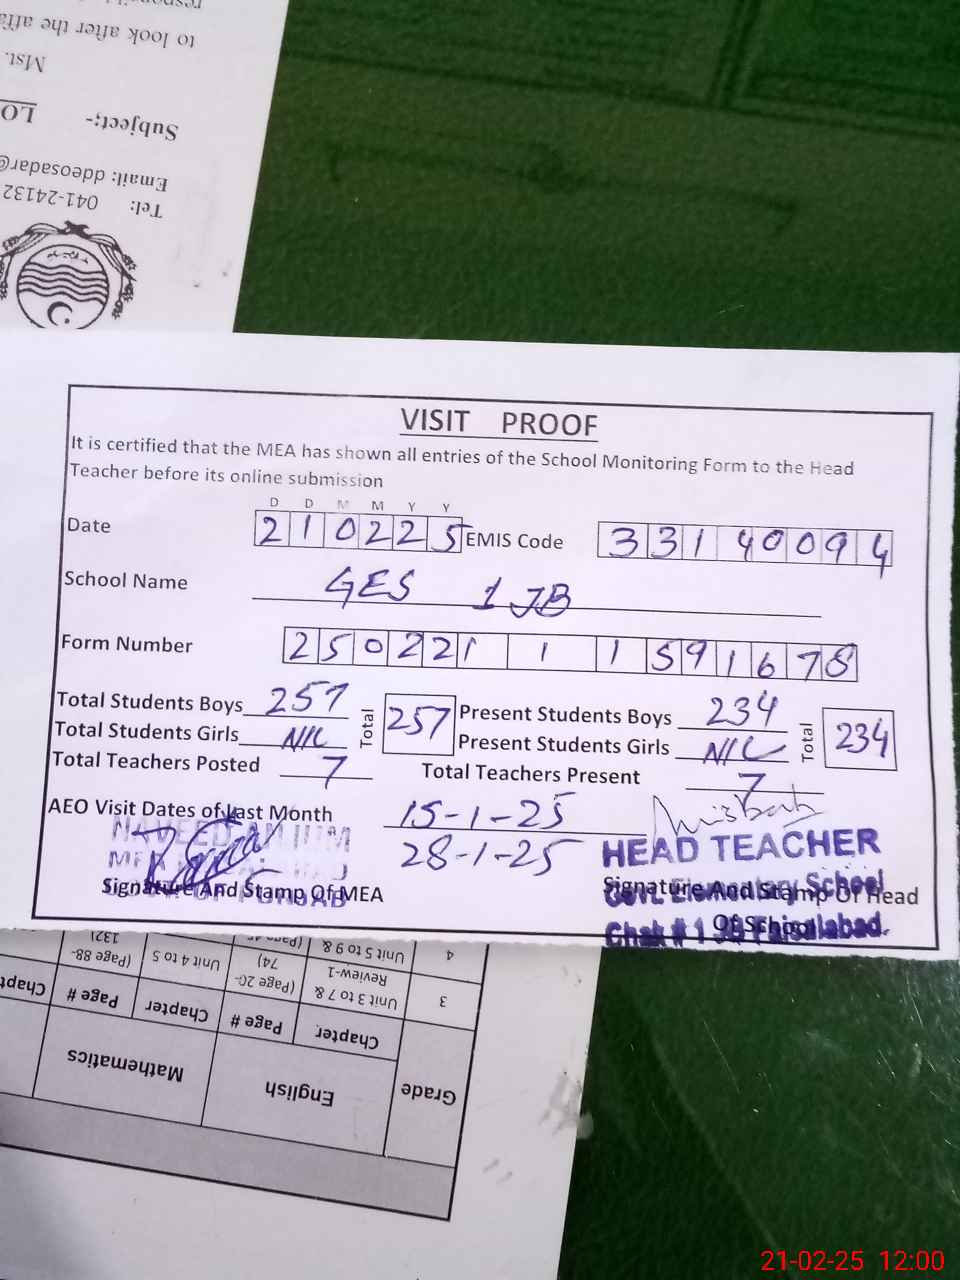 responsibil
to look after the affa
Mst.
Subject;- LO
Email: ddeosadar@
Tel: 041-24132
VISIT PROOF
It is certified that the MEA has shown all entries of the School Monitoring Form to the Head
Teacher before its online submission
D D M M Y Y
Date 210225 EMIS Code 33140094
School Name GES 1 JB
Form Number 25022111591678
Total Students Boys 257 Total 257 Present Students Boys 234 Total 234
Total Students Girls NIL Present Students Girls NIL
Total Teachers Posted 7 Total Teachers Present 7
AEO Visit Dates of Last Month 15-1-25
28-1-25
Misbah
NAVEED ANJUM
HEAD TEACHER
Signature And Stamp Of MEA
Signature And Stamp Of Head
Of School
Govt. Elementary School
Chak # 1 JB Faisalabad.
Grade English Mathematics
Chapter Page # Chapter Page # Chapt
3 Unit 3 to 7 & Review-1 (Page 20-74) Unit 4 to 5 (Page 88-132)
4 Unit 5 to 9 &
21-02-25 12:00